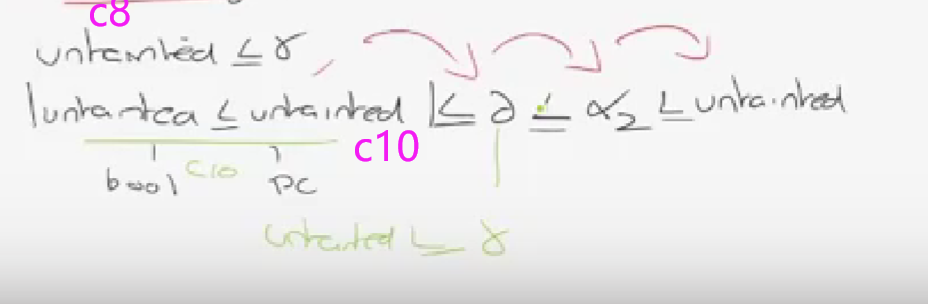 c8
untainted ≤ γ
untainted ≤ untainted ≤ ∂ ≤ α₂ ≤ untainted
c10
bool C10 PC
untainted ≤ γ